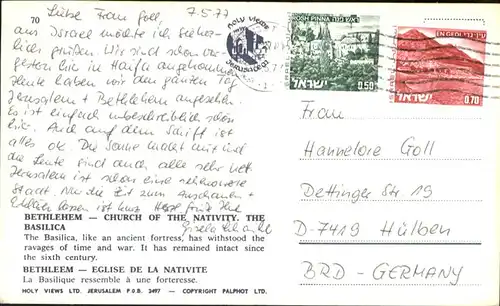 70
7.5.77
Liebe Frau Goll,
aus Israel möchte ich Sie herz-
lich grüßen. Wir sind schon vor-
gestern hier in Haifa angekommen
Heute haben wir den ganzen Tag
Jerusalem + Bethlehem angesehen.
Es ist einfach unbeschreiblich schön
hier. Auch auf dem Schiff ist
alles ok. Die Sonne macht mit und
die Leute sind auch alle sehr nett
Jerusalem ist schon eine
Stadt. Nur die Zeit zum Anschauen +
ist kurz. Herzl. Grüße Ihre
Gisela
BETHLEHEM — CHURCH OF THE NATIVITY. THE
BASILICA
The Basilica, like an ancient fortress, has withstood the
ravages of time and war. It has remained intact since
the sixth century.
BETHLEEM — EGLISE DE LA NATIVITE
La Basilique ressemble à une forteresse.
HOLY VIEWS LTD. JERUSALEM P.O.B. 2497 — COPYRIGHT PALPHOT LTD.
HOLY VIEWS
JERUSALEM
ROSH PINNA ראש פינה
ישראל 0.50
EN GEDI עין גדי
ישראל 0.70
Frau
Hannelore Goll
Dettinger Str 19
D-7419 Hülben
BRD - GERMANY